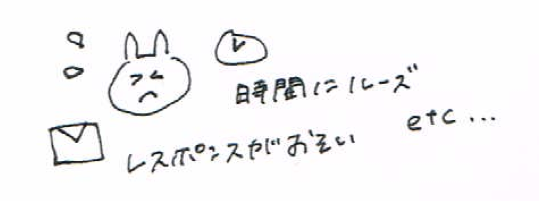 時間にルーズ
レスポンスがおそい
etc...